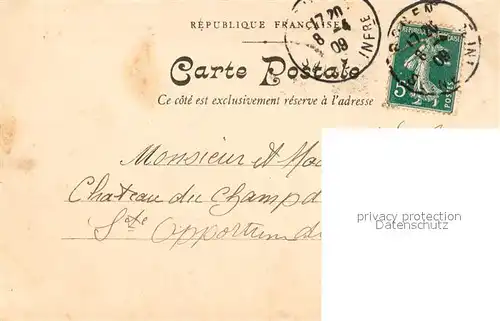 RÉPUBLIQUE FRANÇAISE
Carte Postale
Ce côté est exclusivement réservé à l'adresse
17 20
8 -4
09
INFRE
5
POSTES
Monsieur et Ma
Chateau du Champ d
Ste Opportun
privacy protection
Datenschutz